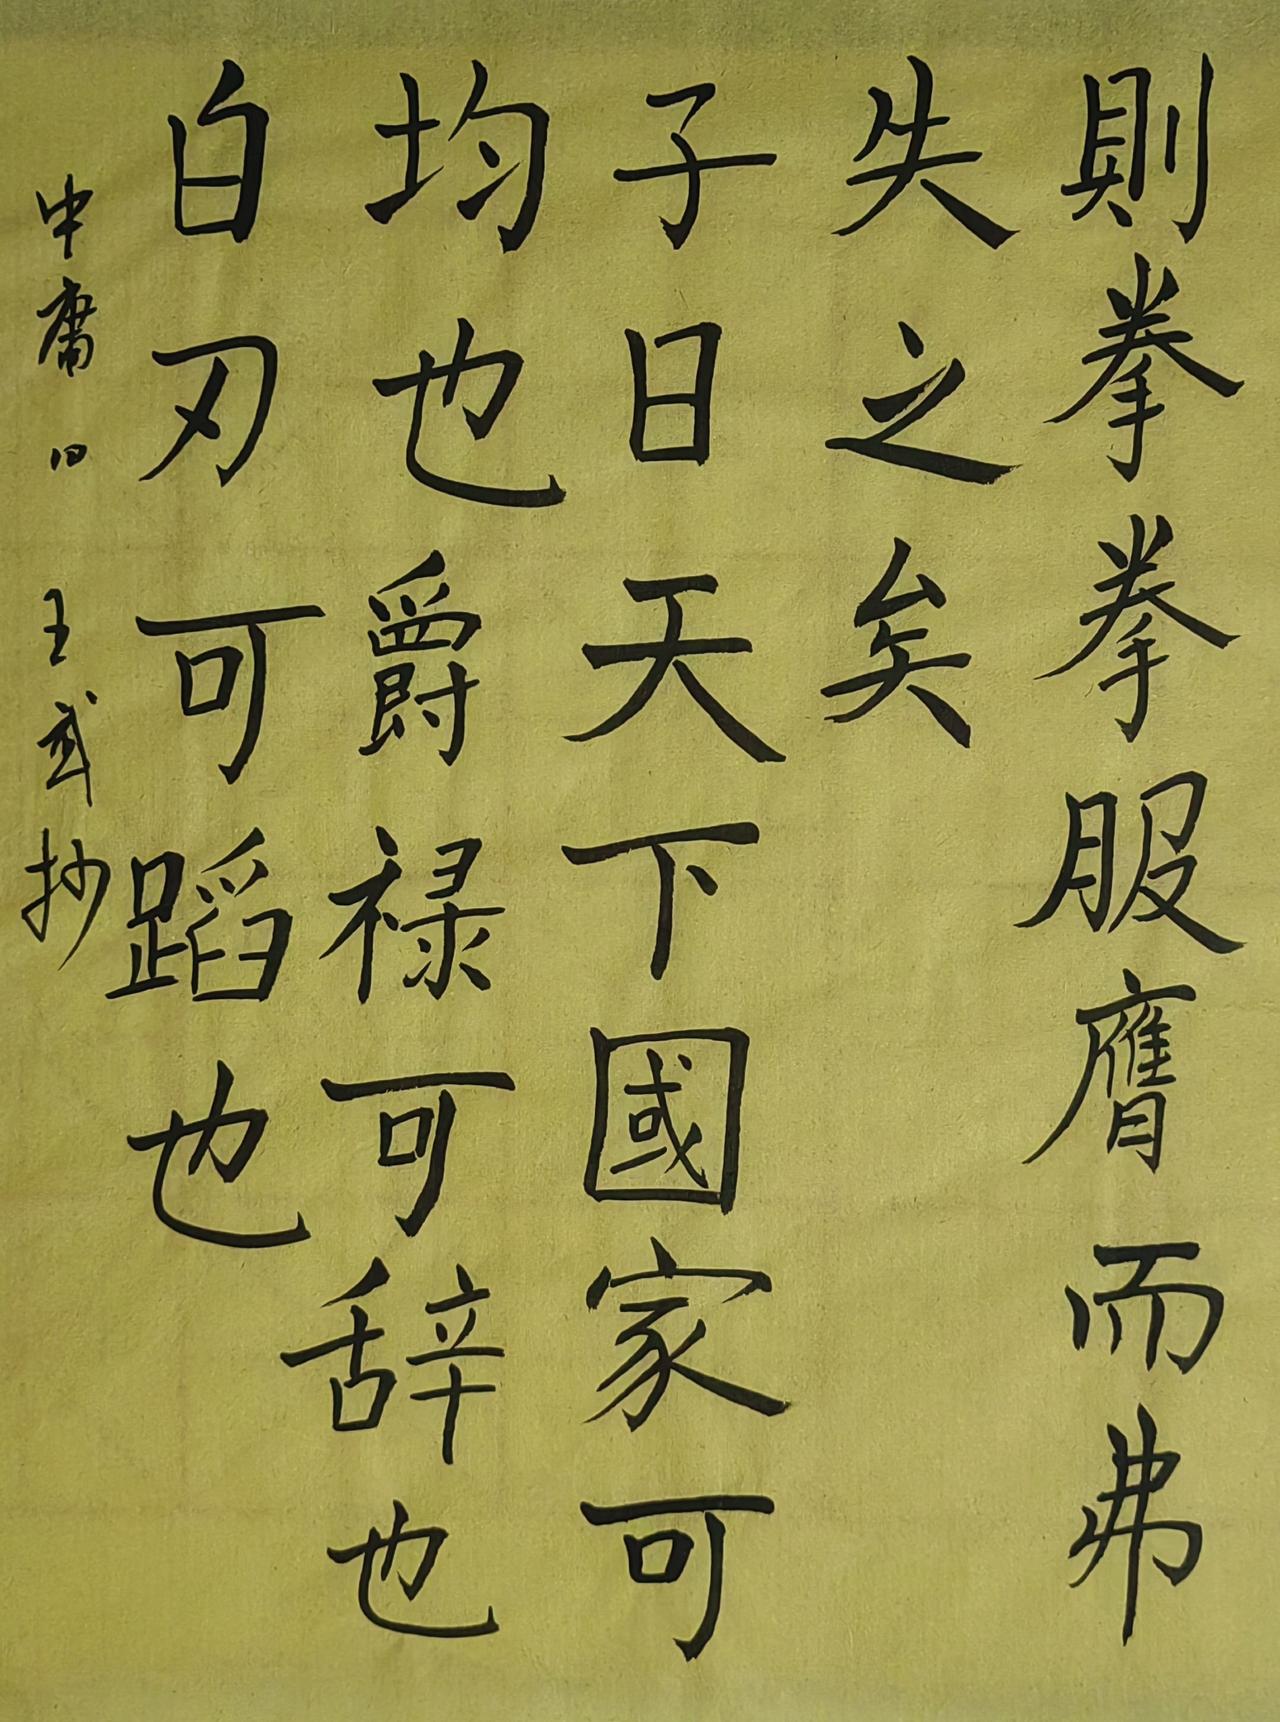 則拳拳服膺而弗
失之矣
子曰天下國家可
均也爵禄可辞也
白刃可蹈也
中庸 王 抄